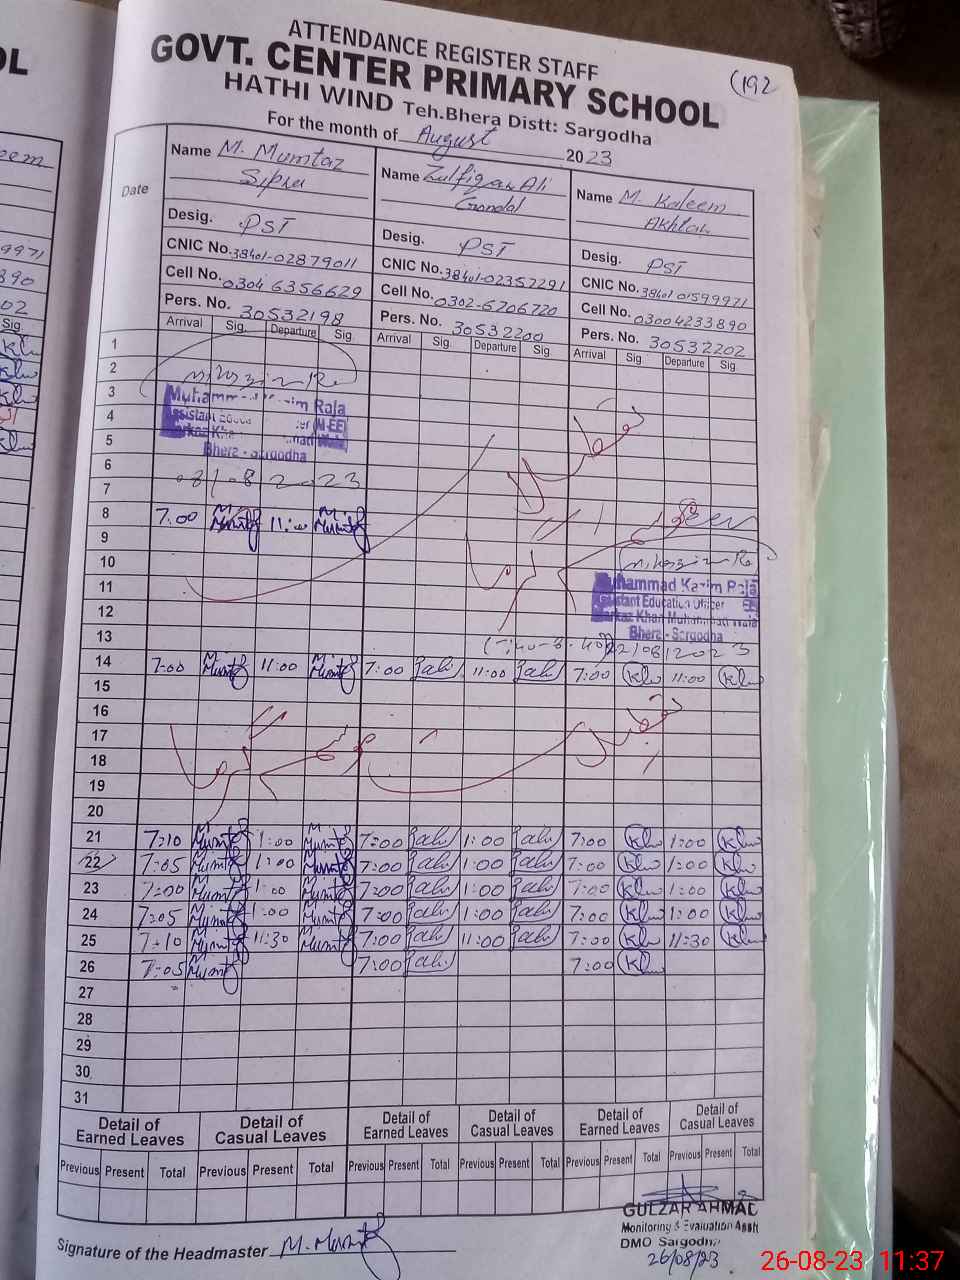 ATTENDANCE REGISTER STAFF
GOVT. CENTER PRIMARY SCHOOL
(192
HATHI WIND Teh.Bhera Distt: Sargodha
For the month of August 2023
Date
Name M. Mumtaz Sipra
Desig. PST
CNIC No. 38401-02879011
Cell No. 0304 6356629
Pers. No. 30532198
Name Zulfiqar Ali Gondal
Desig. PST
CNIC No. 38401-02357291
Cell No. 0302-6706720
Pers. No. 30532200
Name M. Kaleem Akhtar
Desig. PST
CNIC No. 38401 01599971
Cell No. 03004233890
Pers. No. 30532202
Arrival Sig. Departure Sig. Arrival Sig. Departure Sig Arrival Sig. Departure Sig.
1
2
3
Muhamm im Raja
4
Assistant Educa er (M-EE)
5
Markaz Kha mmad Wala
Bhera - Sargodha
6
7
08/08/2023
8 7.00 M. Mumtaz 11:00 M. Mumtaz
9
10
11
Muhammad Kazim Raja
Assistant Education Officer EE
12
Markaz Khan Muhammad Wala
Bhera - Sargodha
13
22/08/2023
14 7:00 M. Mumtaz 11:00 M. Mumtaz 7:00 Zali 11:00 Zali 7:00 Klm 11:00 Klm
15
16
17
18
19
20
21 7:10 M. Mumtaz 1:00 M. Mumtaz 7:00 Zali 1:00 Zali 7:00 Klm 1:00 Klm
22 7:05 M. Mumtaz 1:00 M. Mumtaz 7:00 Zali 1:00 Zali 7:00 Klm 1:00 Klm
23 7:00 M. Mumtaz 1:00 M. Mumtaz 7:00 Zali 1:00 Zali 7:00 Klm 1:00 Klm
24 7:05 M. Mumtaz 1:00 M. Mumtaz 7:00 Zali 1:00 Zali 7:00 Klm 1:00 Klm
25 7:10 M. Mumtaz 11:30 M. Mumtaz 7:00 Zali 11:00 Zali 7:00 Klm 11:30 Klm
26 7:05 M. Mumtaz 7:00 Zali 7:00 Klm
27
28
29
30
31
Detail of Earned Leaves Detail of Casual Leaves Detail of Earned Leaves Detail of Casual Leaves Detail of Earned Leaves Detail of Casual Leaves
Previous Present Total Previous Present Total Previous Present Total Previous Present Total Previous Present Total Previous Present Total
Signature of the Headmaster M. Mumtaz
GULZAR AHMAD
Monitoring & Evaluation Asstt
DMO Sargodha
26/08/23
26-08-23 11:37